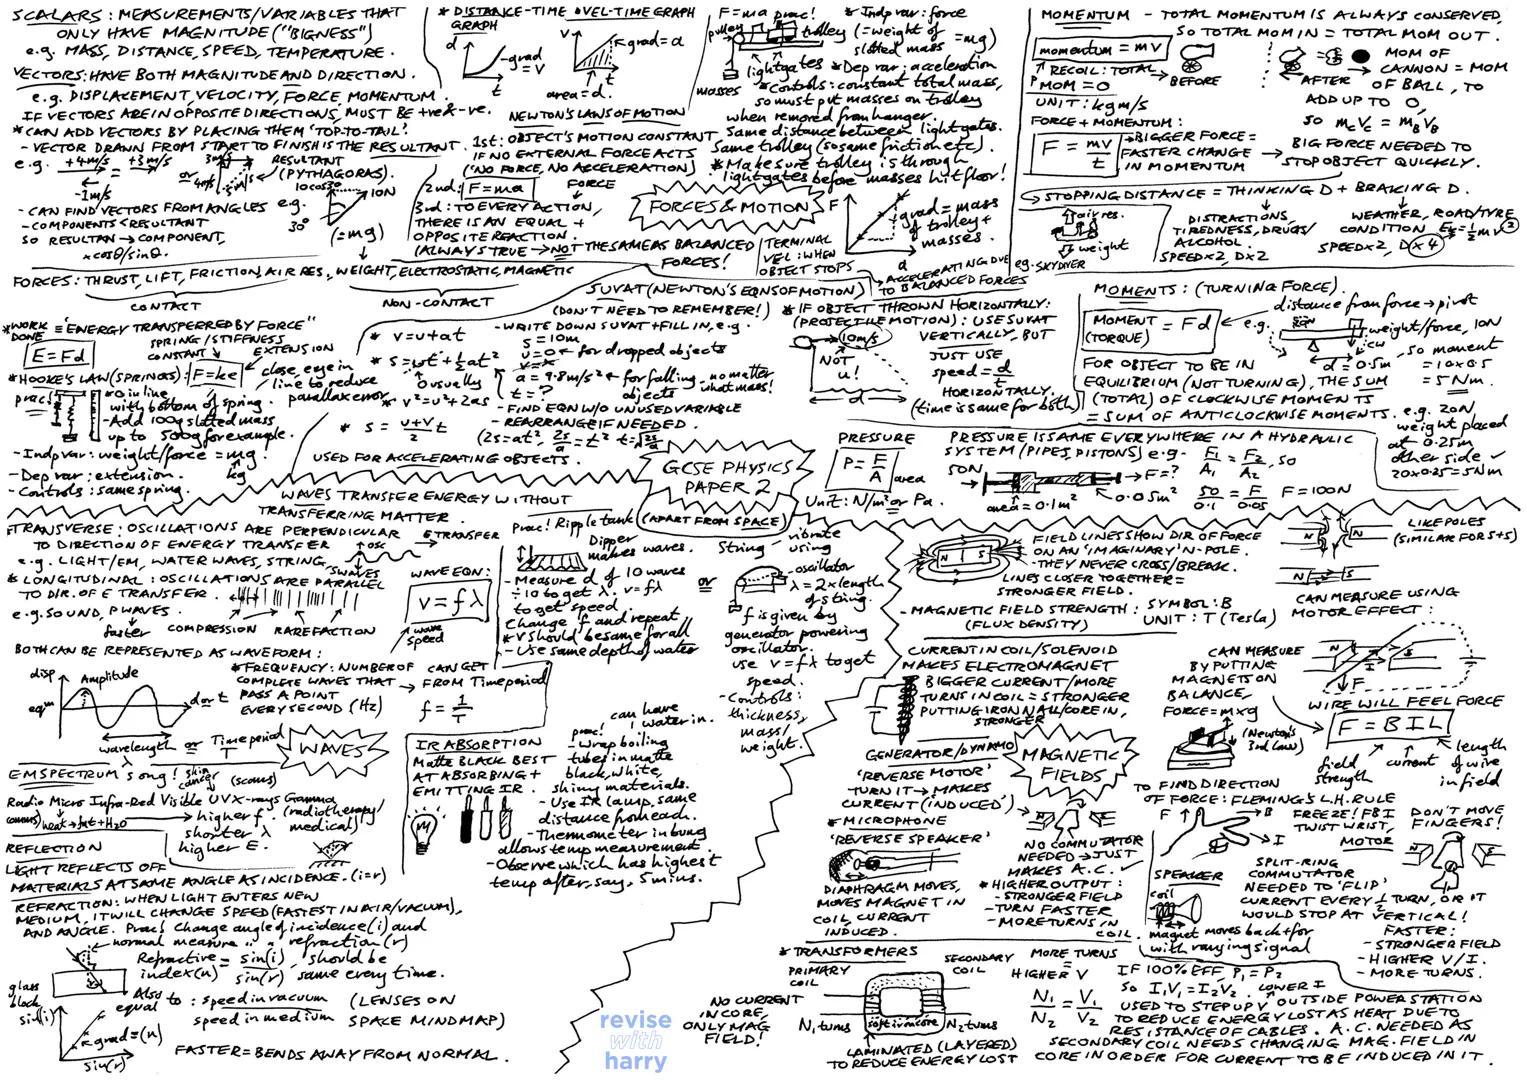 SCALARS: MEASUREMENTS/VARIABLES THAT
ONLY HAVE MAGNITUDE ("BIGNESS")
e.g. MASS, DISTANCE, SPEED, TEMPERATURE.
VECTORS: HAVE BOTH MAGNITUDE AND DIRECTION.
e.g. DISPLACEMENT, VELOCITY, FORCE, MOMENTUM.
IF VECTORS ARE IN OPPOSITE DIRECTIONS, MUST BE +ve & -ve.
* CAN ADD VECTORS BY PLACING THEM 'TOP-TO-TAIL'.
- VECTOR DRAWN FROM START TO FINISH IS THE RESULTANT.
e.g. +4m/s +3m/s
= -1m/s
or 4m/s 3m/s 5m/s RESULTANT
(PYTHAGORAS).
- CAN FIND VECTORS FROM ANGLES e.g.
10cos30 10N 30°
- COMPONENTS < RESULTANT
SO RESULTAN → COMPONENT,
x cosθ/sinθ.
(=mg)
FORCES: THRUST, LIFT, FRICTION, AIR RES, WEIGHT, ELECTROSTATIC, MAGNETIC
CONTACT NON-CONTACT
* DISTANCE-TIME & VEL-TIME GRAPH
GRAPH
d t grad = v
v t grad = a
area = d.
NEWTON'S LAWS OF MOTION
1st: OBJECT'S MOTION CONSTANT
IF NO EXTERNAL FORCE ACTS
('NO FORCE, NO ACCELERATION)
2nd: F = ma FORCE
3rd: TO EVERY ACTION,
THERE IS AN EQUAL +
OPPOSITE REACTION.
(ALWAYS TRUE → NOT THE SAME AS BALANCED
FORCES!
F = ma prac!
pulley trolley
lightgates
masses
* Indp var: force
(= weight of
slotted mass = mg)
* Dep var: acceleration
* Controls: constant total mass,
so must put masses on trolley
when removed from hanger.
Same distance between lightgates.
Same trolley (so same friction etc).
* Make sure trolley is through
lightgates before masses hit floor!
FORCES & MOTION
F a
grad = mass
of trolley +
masses.
TERMINAL
VEL: WHEN
OBJECT STOPS
ACCELERATING DUE
TO BALANCED FORCES
e.g. SKYDIVER
air res.
weight
MOMENTUM - TOTAL MOMENTUM IS ALWAYS CONSERVED,
SO TOTAL MOM IN = TOTAL MOM OUT.
momentum = mv
RECOIL: TOTAL
MOM = 0
BEFORE
AFTER
MOM OF
CANNON = MOM
OF BALL, TO
ADD UP TO 0,
so mcVc = mBVB
UNIT: kgm/s
FORCE + MOMENTUM:
F = mv/t
BIGGER FORCE =
FASTER CHANGE
IN MOMENTUM
BIG FORCE NEEDED TO
STOP OBJECT QUICKLY.
STOPPING DISTANCE = THINKING D + BRAKING D.
DISTRACTIONS,
TIREDNESS, DRUGS/
ALCOHOL.
SPEED x2, D x2
WEATHER, ROAD/TYRE
CONDITION Ek = ½mv²
SPEED x2, D x4
*WORK DONE = "ENERGY TRANSFERRED BY FORCE"
E = Fd
SPRING/STIFFNESS
CONSTANT EXTENSION
*HOOKE'S LAW (SPRINGS): F = ke
close, eye in
line to reduce
parallax error
prac!
* 0 in line
with bottom of spring.
- Add 100g slotted mass
up to 500g for example.
- Indp var: weight/force = mg.
kg
- Dep var: extension.
- Controls: same spring.
SUVAT (NEWTON'S EQNS OF MOTION)
(DON'T NEED TO REMEMBER!)
* v = u + at
* s = ut + ½at²
0 usually
* v² = u² + 2as
* s = u+v/2 t
USED FOR ACCELERATING OBJECTS.
- WRITE DOWN SUVAT + FILL IN, e.g.
s = 10m
u = 0 ← for dropped objects
v =
a = 9.8m/s² ← for falling objects
no matter what mass!
t = ?
- FIND EQN W/O UNUSED VARIABLE
- REARRANGE IF NEEDED.
(2s = at², 2s/a = t² t = √2s/a
* IF OBJECT THROWN HORIZONTALLY:
(PROJECTILE MOTION): USE SUVAT
VERTICALLY, BUT
JUST USE
speed = d/t
HORIZONTALLY.
(time is same for both)
10m/s
NOT
u!
d
MOMENTS: (TURNING FORCE).
MOMENT
(TORQUE) = Fd
distance from force → pivot
e.g.
20N
weight/force, 10N
cw
d = 0.5m
so moment
= 10 x 0.5
= 5Nm.
FOR OBJECT TO BE IN
EQUILIBRIUM (NOT TURNING), THE SUM
(TOTAL) OF CLOCKWISE MOMENTS
= SUM OF ANTICLOCKWISE MOMENTS.
e.g. 20N
weight placed
at 0.25m
other side ✓
20 x 0.25 = 5Nm
PRESSURE
P = F/A area
Unit: N/m² or Pa.
PRESSURE IS SAME EVERYWHERE IN A HYDRAULIC
SYSTEM (PIPES, PISTONS) e.g.
F1/A1 = F2/A2, so
50N
→ F = ?
area = 0.1m²
0.05m²
50/0.1 = F/0.05 F = 100N
GCSE PHYSICS
PAPER 2
(APART FROM SPACE)
WAVES TRANSFER ENERGY WITHOUT
TRANSFERRING MATTER.
*TRANSVERSE: OSCILLATIONS ARE PERPENDICULAR
TO DIRECTION OF ENERGY TRANSFER
osc E TRANSFER
e.g. LIGHT/EM, WATER WAVES, STRING, S WAVES
* LONGITUDINAL: OSCILLATIONS ARE PARALLEL
TO DIR. OF E TRANSFER.
e.g. SOUND, P WAVES.
faster
COMPRESSION RAREFACTION
WAVE EQN:
v = fλ
wave
speed
BOTH CAN BE REPRESENTED AS WAVEFORM:
disp Amplitude
eqm d or t
wavelength or Time period
λ T
* FREQUENCY: NUMBER OF
COMPLETE WAVES THAT
PASS A POINT
EVERY SECOND (Hz)
CAN GET
FROM Time period
f = 1/T
WAVES
prac! Ripple tank
Dipper
makes waves.
- Measure d of 10 waves
÷ 10 to get λ. v = fλ
to get speed.
Change f and repeat,
* v should be same for all
- Use same depth of water
or
String - vibrate
using
oscillator
λ = 2 x length
of string.
f is given by
generator powering
oscillator.
use v = fλ to get
speed.
- Controls:
thickness,
mass/
weight.
EM SPECTRUM song! skin cancer (scans)
Radio Micro Infra-Red Visible UV X-rays Gamma
(comms) heat → fat + H2O
(radiotherapy/
medical)
→ higher f.
shorter λ
higher E.
REFLECTION
LIGHT REFLECTS OFF
MATERIALS AT SAME ANGLE AS INCIDENCE. (i=r)
REFRACTION: WHEN LIGHT ENTERS NEW
MEDIUM, IT WILL CHANGE SPEED (FASTEST IN AIR/VACUUM),
AND ANGLE. Prac! Change angle of incidence (i) and
normal measure " " refraction (r)
Refractive
index (n) = sin(i)/sin(r), should be
same every time.
glass
block
Also
equal to: speed in vacuum
speed in medium
(LENSES ON
SPACE MINDMAP)
sin(i)
grad = (n)
sin(r)
FASTER = BENDS AWAY FROM NORMAL.
IR ABSORPTION
Matte BLACK BEST
AT ABSORBING +
EMITTING IR.
prac!
can have
water in.
- Wrap boiling
tubes in matte
black, white,
shiny materials.
- Use IR lamp, same
distance from each.
- Thermometer in bung
allows temp measurement.
- Observe which has highest
temp after, say, 5 mins.
FIELD LINES SHOW DIR OF FORCE
ON AN 'IMAGINARY' N-POLE.
- THEY NEVER CROSS/BREAK.
LINES CLOSER TOGETHER =
STRONGER FIELD.
N S
N N
LIKE POLES
(SIMILAR FOR S+S)
N S
- MAGNETIC FIELD STRENGTH: SYMBOL: B
(FLUX DENSITY) UNIT: T (Tesla)
CAN MEASURE USING
MOTOR EFFECT:
CURRENT IN COIL/SOLENOID
MAKES ELECTROMAGNET
BIGGER CURRENT/MORE
TURNS IN COIL = STRONGER
PUTTING IRON NAIL/CORE IN,
STRONGER
CAN MEASURE
BY PUTTING
MAGNETS ON
BALANCE,
FORCE = m x g
(Newton's
3rd Law)
N S I F
WIRE WILL FEEL FORCE
F = BIL
field
strength
current
length
of wire
in field
MAGNETIC
FIELDS
GENERATOR/DYNAMO
'REVERSE MOTOR'
TURN IT → MAKES
CURRENT (INDUCED)
* MICROPHONE
'REVERSE SPEAKER'
DIAPHRAGM MOVES,
MOVES MAGNET IN
COIL, CURRENT
INDUCED.
NO COMMUTATOR
NEEDED → JUST
MAKES A.C. ✓
* HIGHER OUTPUT:
- STRONGER FIELD
- TURN FASTER
- MORE TURNS IN
COIL.
TO FIND DIRECTION
OF FORCE: FLEMING'S L.H. RULE
F B I
FREEZE! FBI
TWIST WRIST,
DON'T MOVE
FINGERS!
MOTOR
N S
SPLIT-RING
COMMUTATOR
NEEDED TO 'FLIP'
CURRENT EVERY ½ TURN, OR IT
WOULD STOP AT VERTICAL!
SPEAKER
coil
magnet moves back + for
with varying signal
FASTER:
- STRONGER FIELD
- HIGHER V/I.
- MORE TURNS.
* TRANSFORMERS
PRIMARY
COIL
SECONDARY
COIL
N1 turns soft iron core N2 turns
NO CURRENT
IN CORE,
ONLY MAG
FIELD!
LAMINATED (LAYERED)
TO REDUCE ENERGY LOST
MORE TURNS =
HIGHER V
N1/N2 = V1/V2
IF 100% EFF, P1 = P2
SO I1V1 = I2V2. LOWER I
USED TO STEP UP V OUTSIDE POWER STATION
TO REDUCE ENERGY LOST AS HEAT DUE TO
RESISTANCE OF CABLES. A.C. NEEDED AS
SECONDARY COIL NEEDS CHANGING MAG. FIELD IN
CORE IN ORDER FOR CURRENT TO BE INDUCED IN IT.
revise
with
harry